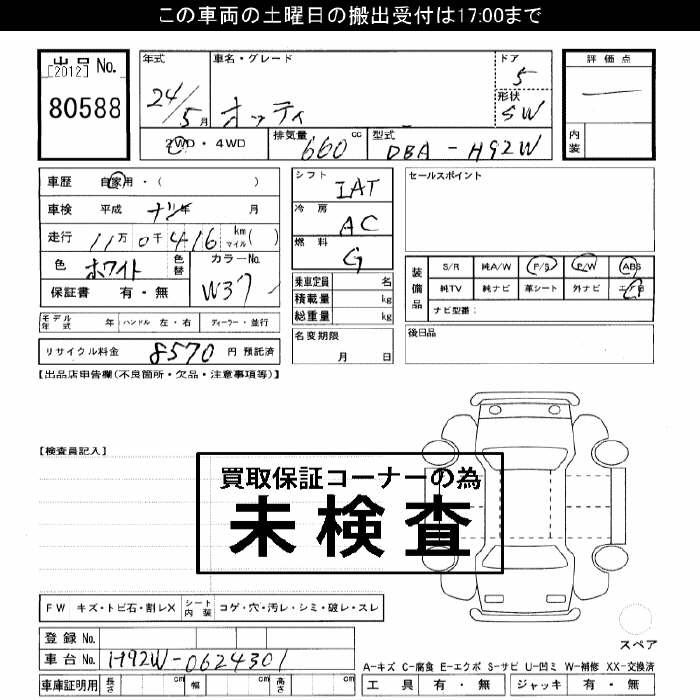 この車両の土曜日の搬出受付は17:00まで
出品 No.
[2012]
80588
年式
24/5月
車名・グレード
オッティ
ドア
5
形状
SW
2WD・4WD
排気量
660 cc
型式
DBA-H92W
評価点
内装
車歴 自家用・( )
車検 平成 ナシ年 月
走行 11万0千416 km マイル( )
色 ホワイト 色替
カラーNo.
W37
保証書 有・無
モデル年式 年 ハンドル 左・右 ディーラー・並行
リサイクル料金 8570 円 預託済
シフト
IAT
冷房
AC
燃料
G
乗車定員 名
積載量 kg
総重量 kg
名変期限
月 日
セールスポイント
装備品
S/R 純A/W P/S P/W ABS
純TV 純ナビ 革シート 外ナビ エアB
ナビ型番:
後日品
【出品店申告欄(不良箇所・欠品・注意事項等)】
【検査員記入】
買取保証コーナーの為
未検査
FW キズ・トビ石・割レX シート内装 コゲ・穴・汚レ・シミ・破レ・スレ
スペア
登録 No.
車台 No. H92W-0624301
車庫証明用 長さ cm 幅 cm 高さ cm
A-キズ C-腐食 E-エクボ S-サビ U-凹ミ W-補修 XX-交換済
工具 有・無 ジャッキ 有・無